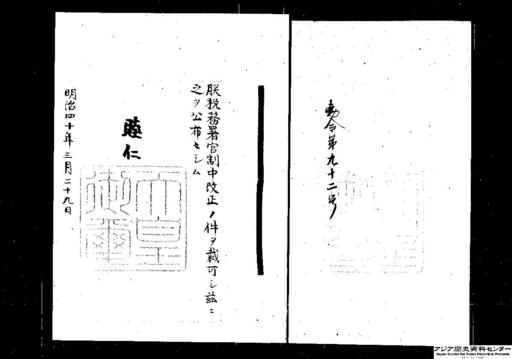 勅令第九十二号
朕税務署官制中改正ノ件ヲ裁可シ茲ニ
之ヲ公布セシム
睦仁
天皇
御璽
明治四十年三月二十九日
アジア歴史資料センター
Japan Center for Asian Historical Records